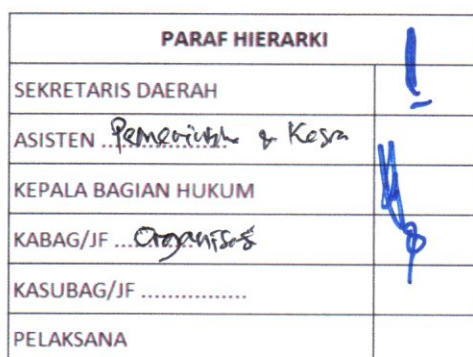 PARAF HIERARKI
SEKRETARIS DAERAH
ASISTEN ................ & Kesra
KEPALA BAGIAN HUKUM
KABAG/JF ... Organisasi
KASUBAG/JF ................
PELAKSANA